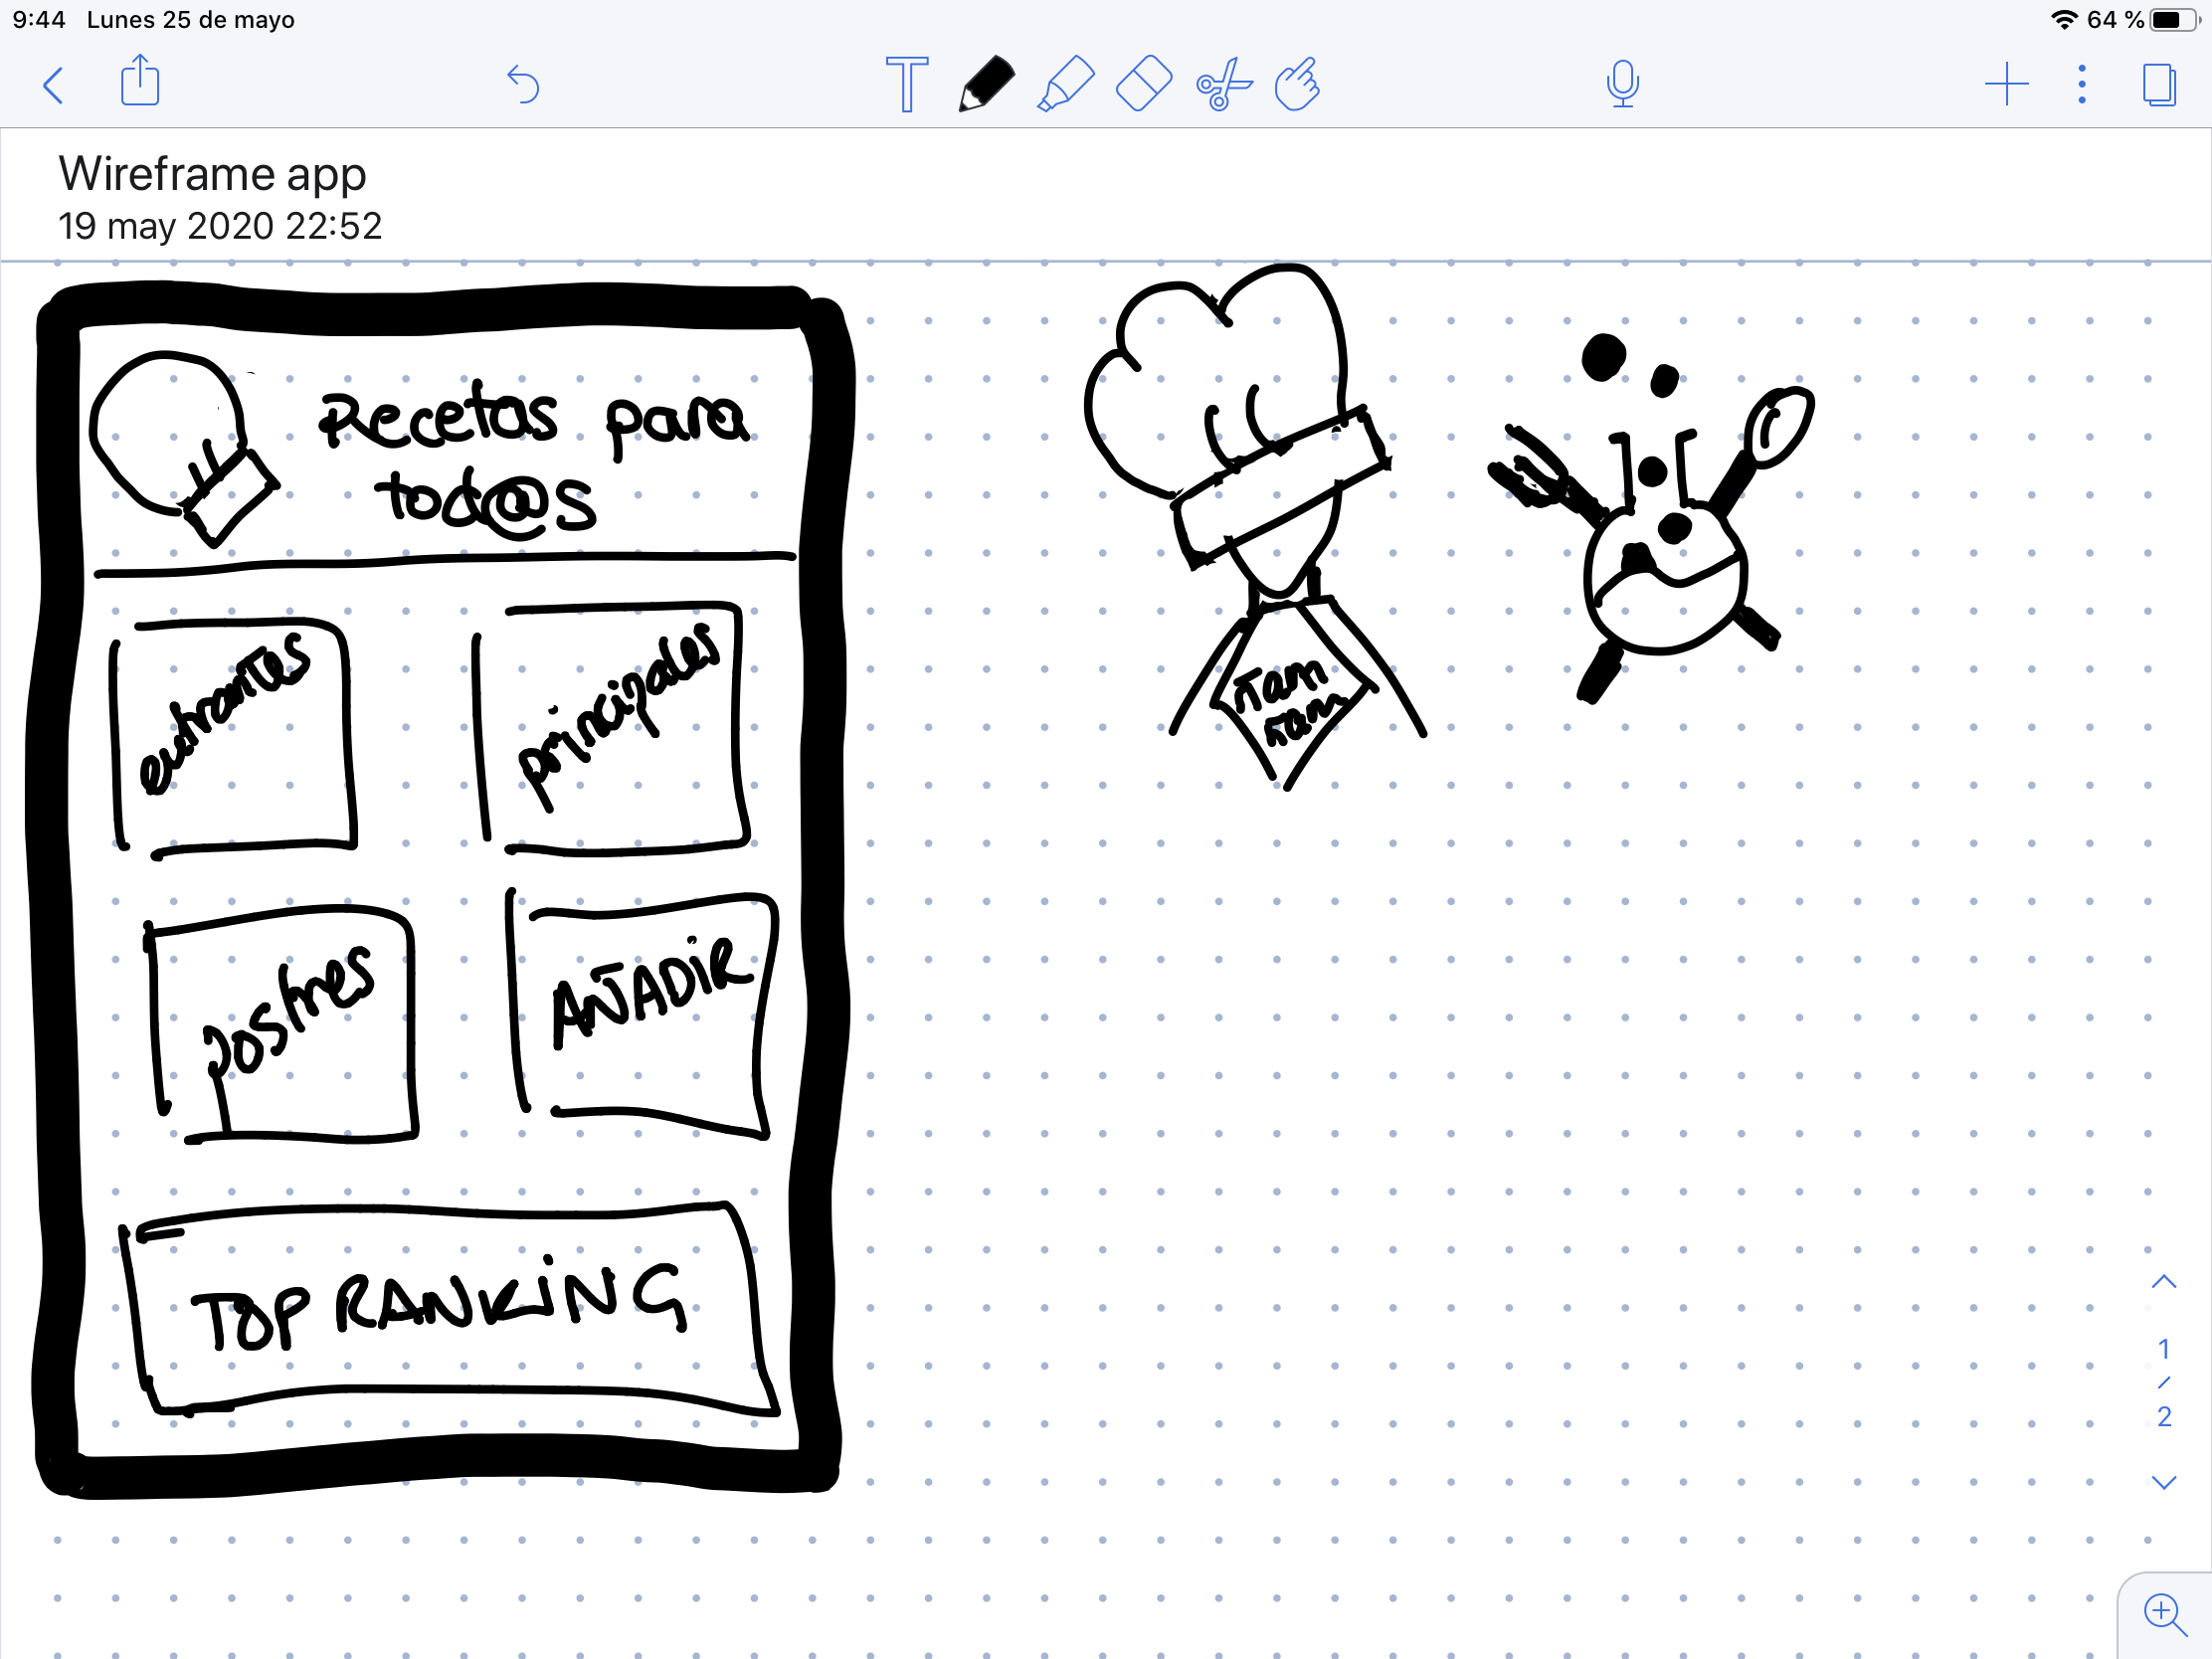 9:44 Lunes 25 de mayo 64 %
Wireframe app
19 may 2020 22:52
Recetas para
tod@s
entrantes
principales
postres
AÑADIR
TOP RANKING
ÑAM
ÑAM
1
/
2